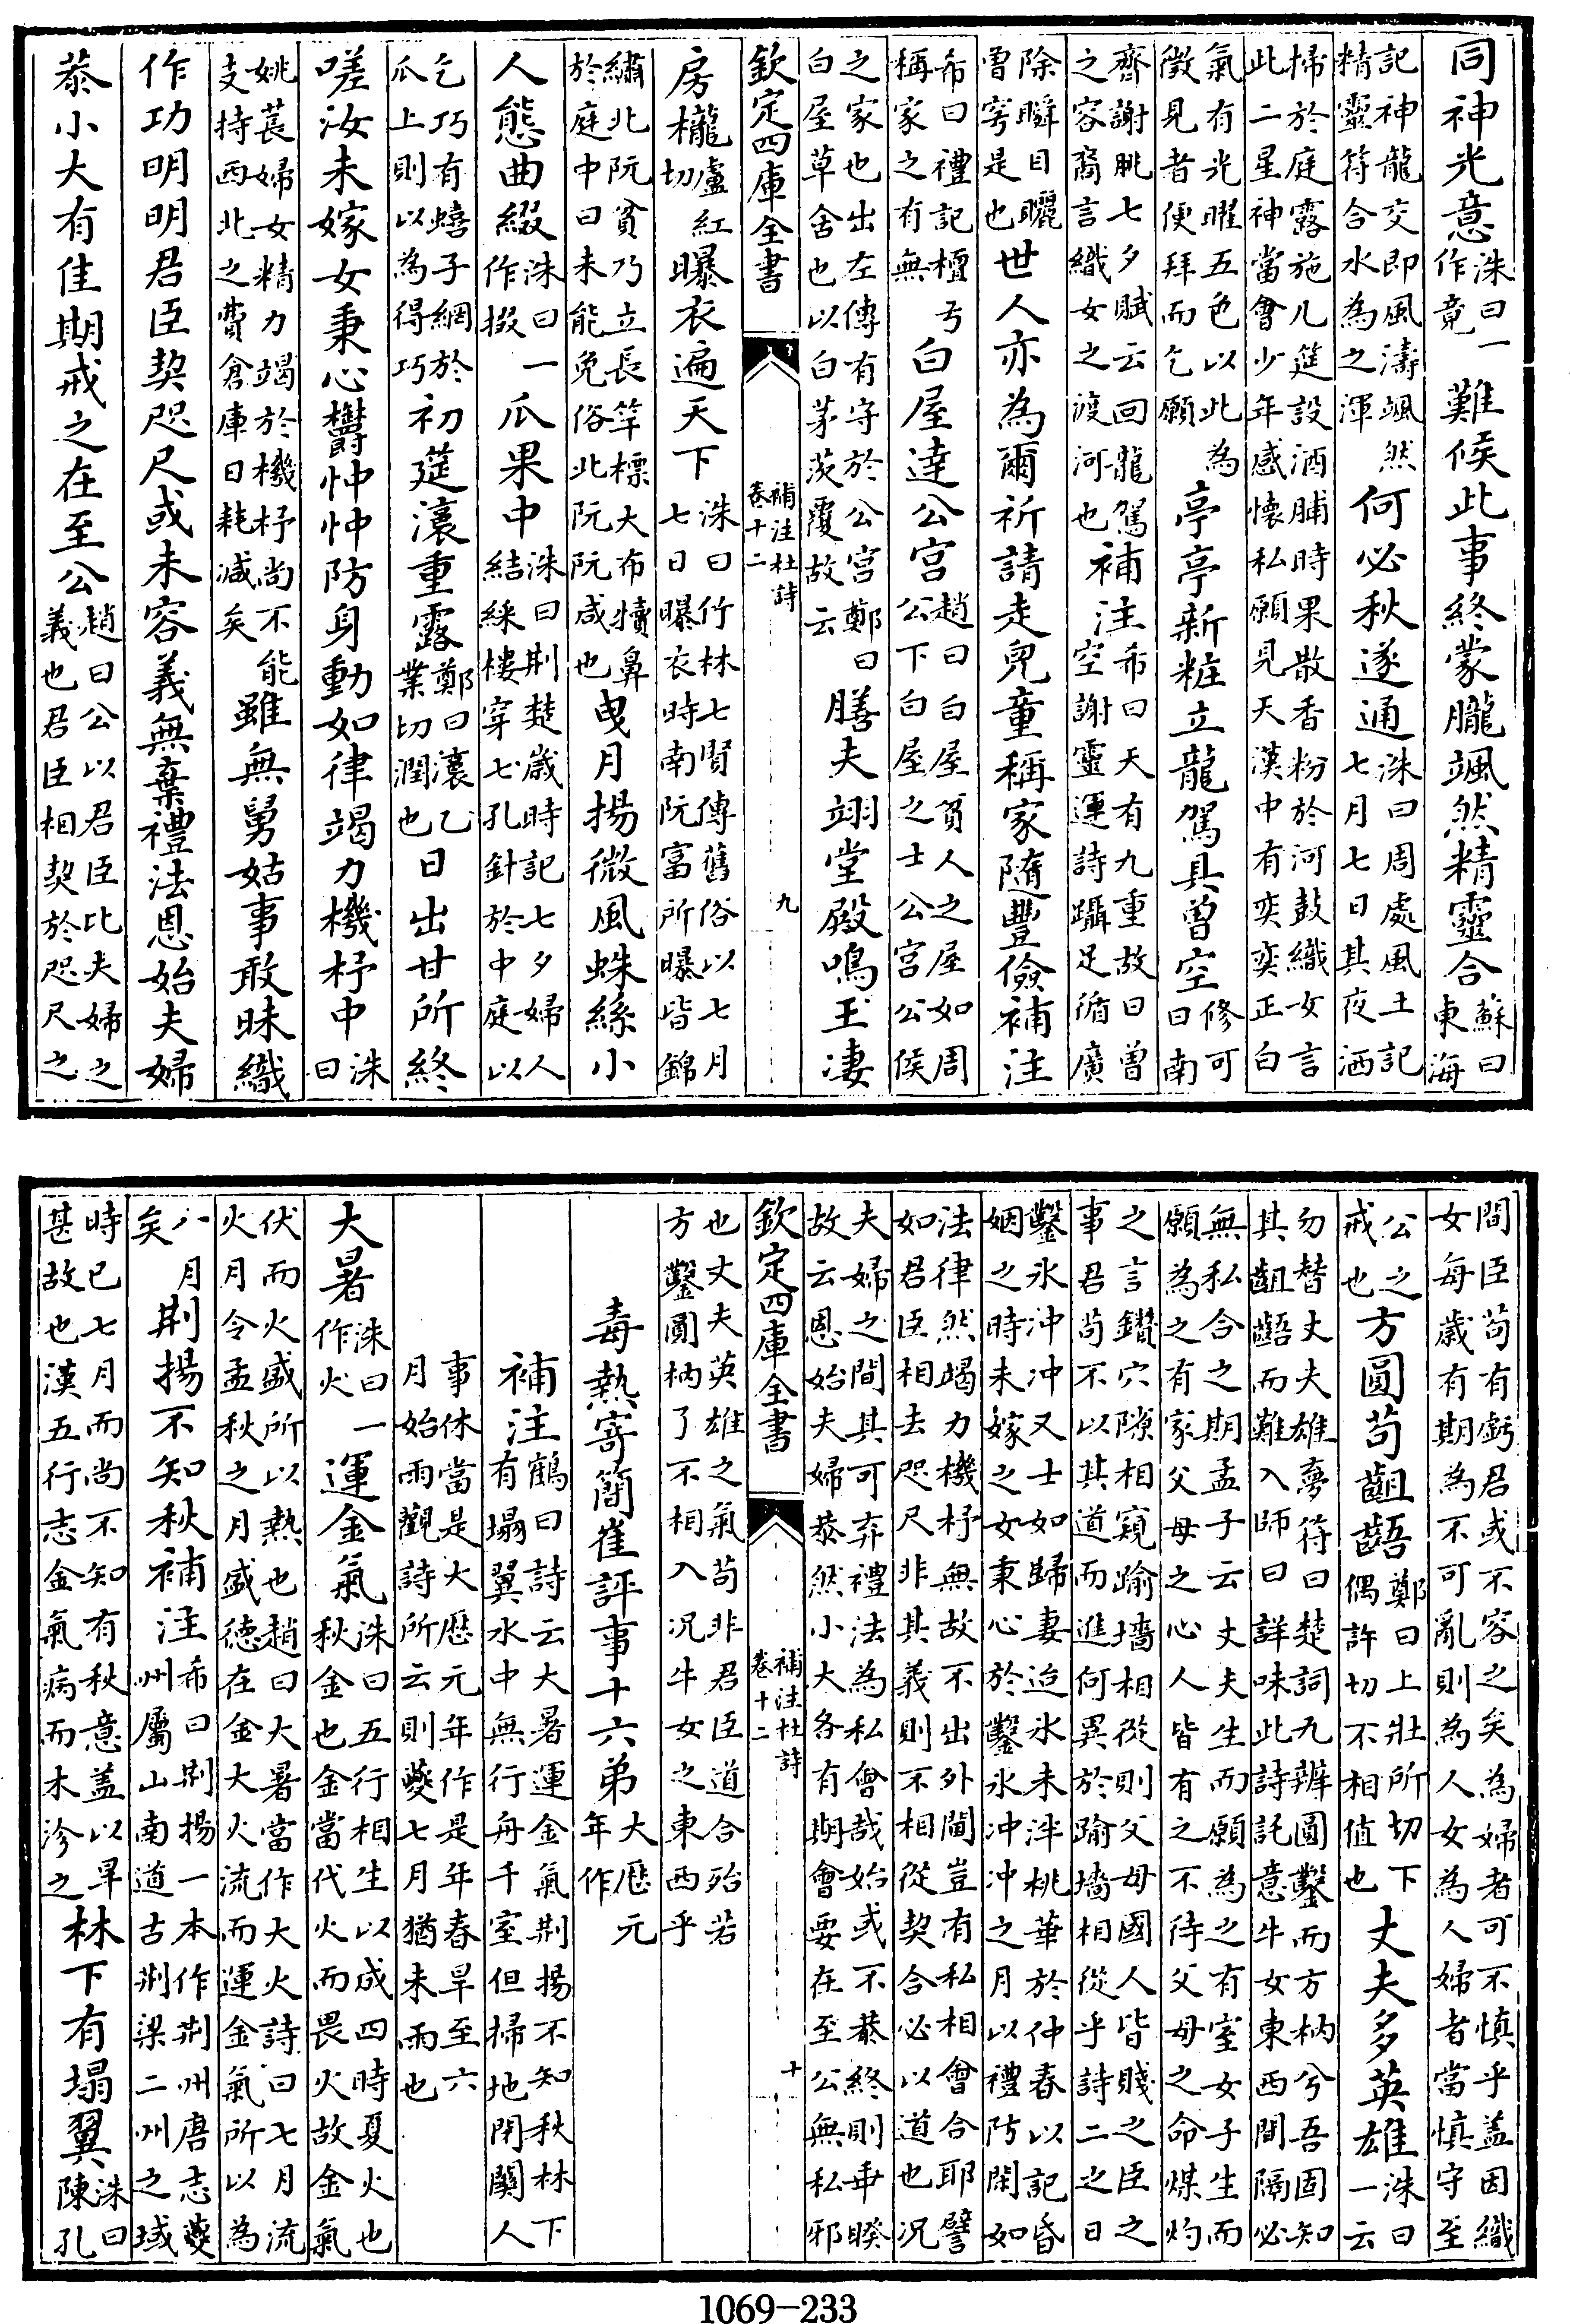 同神光意洙曰一作竟難候此事終蒙朧颯然精靈合蘇曰東海
記神龍交即風濤颯然精靈符合水為之渾何必秋遂通洙曰周處風土記七月七日其夜洒
掃於庭露施几筵設酒脯時果散香粉於河鼓織女言此二星神當會少年感懷私願見天漢中有奕奕正白
氣有光曜五色以此為徵見者便拜而乞願亭亭新粧立龍駕具曾空修可曰南
齊謝朓七夕賦云回龍駕之容裔言織女之渡河也補注希曰天有九重故曰曾空謝靈運詩躡足循廣
除瞬目矖曾穹是也世人亦為爾祈請走兒童稱家隨豐儉補注
希曰禮記檀弓稱家之有無白屋達公宮趙曰白屋貧人之屋如周公下白屋之士公宮公侯
之家也出左傳有守於公宮鄭曰白屋草舍也以白茅茨覆故云膳夫翊堂殿鳴玉凄
欽定四庫全書 補注杜詩卷十二 九
房櫳盧紅切曝衣遍天下洙曰竹林七賢傳舊俗以七月七日曝衣時南阮富所曝皆錦
繡北阮貧乃立長竿標大布犢鼻於庭中曰未能免俗北阮阮咸也曳月揚微風蛛絲小
人態曲綴洙曰一作掇瓜果中洙曰荆楚歲時記七夕婦人結綵樓穿七孔針於中庭以
乞巧有蟢子網於瓜上則以為得巧初筵瀼重露鄭曰瀼乙業切潤也日出甘所終
嗟汝未嫁女秉心鬱忡忡防身動如律竭力機杼中洙曰
姚萇婦女精力竭於機杼尚不能支持西北之費倉庫日耗减矣雖無舅姑事敢昧織
作功明明君臣契咫尺或未容義無棄禮法恩始夫婦
恭小大有佳期戒之在至公趙曰公以君臣比夫婦之義也君臣相契於咫尺之
間臣苟有虧君或不容之矣為婦者可不慎乎盖因織女每歲有期為不可亂則為人女為人婦者當慎守至
公之戒也方圓苟齟齬鄭曰上壯所切下偶許切不相值也丈夫多英雄洙曰一云
勿替丈夫雄夢符曰楚詞九辨圓鑿而方枘兮吾固知其齟齬而難入師曰詳味此詩託意牛女東西間隔必
無私合之期孟子云丈夫生而願為之有室女子生而願為之有家父母之心人皆有之不待父母之命煤灼
之言鑽穴隙相窺踰墻相從則父母國人皆賤之臣之事君苟不以其道而進何異於踰墻相從乎詩二之日
鑿氷沖沖又士如歸妻迨氷未泮桃華於仲春以記昏姻之時未嫁之女秉心於鑿氷沖沖之月以禮防閑如
法律然竭力機杼無故不出外閫豈有私相會合耶譬如君臣相去咫尺非其義則不相從契合必以道也况
夫婦之間其可弃禮法為私會哉始或不恭終則乖暌故云恩始夫婦恭然小大各有期會要在至公無私邪
欽定四庫全書 補注杜詩卷十二 十
也丈夫英雄之氣苟非君臣道合殆若方鑿圓枘了不相入况牛女之東西乎
毒熱寄簡崔評事十六弟大厯元年作
補注鶴曰詩云大暑運金氣荆揚不知秋林下有塌翼水中無行舟千室但掃地閉關人
事休當是大厯元年作是年春旱至六月始雨觀詩所云則夔七月猶未雨也
大暑洙曰一作火運金氣洙曰五行相生以成四時夏火也秋金也金當代火而畏火故金氣
伏而火盛所以熱也趙曰大暑當作大火詩曰七月流火月令孟秋之月盛德在金大火流而運金氣所以為
八月矣荆揚不知秋補注希曰荆揚一本作荆州唐志夔州屬山南道古荆梁二州之域
時已七月而尚不知有秋意盖以旱甚故也漢五行志金氣病而木沴之林下有塌翼洙曰陳孔
1069-233